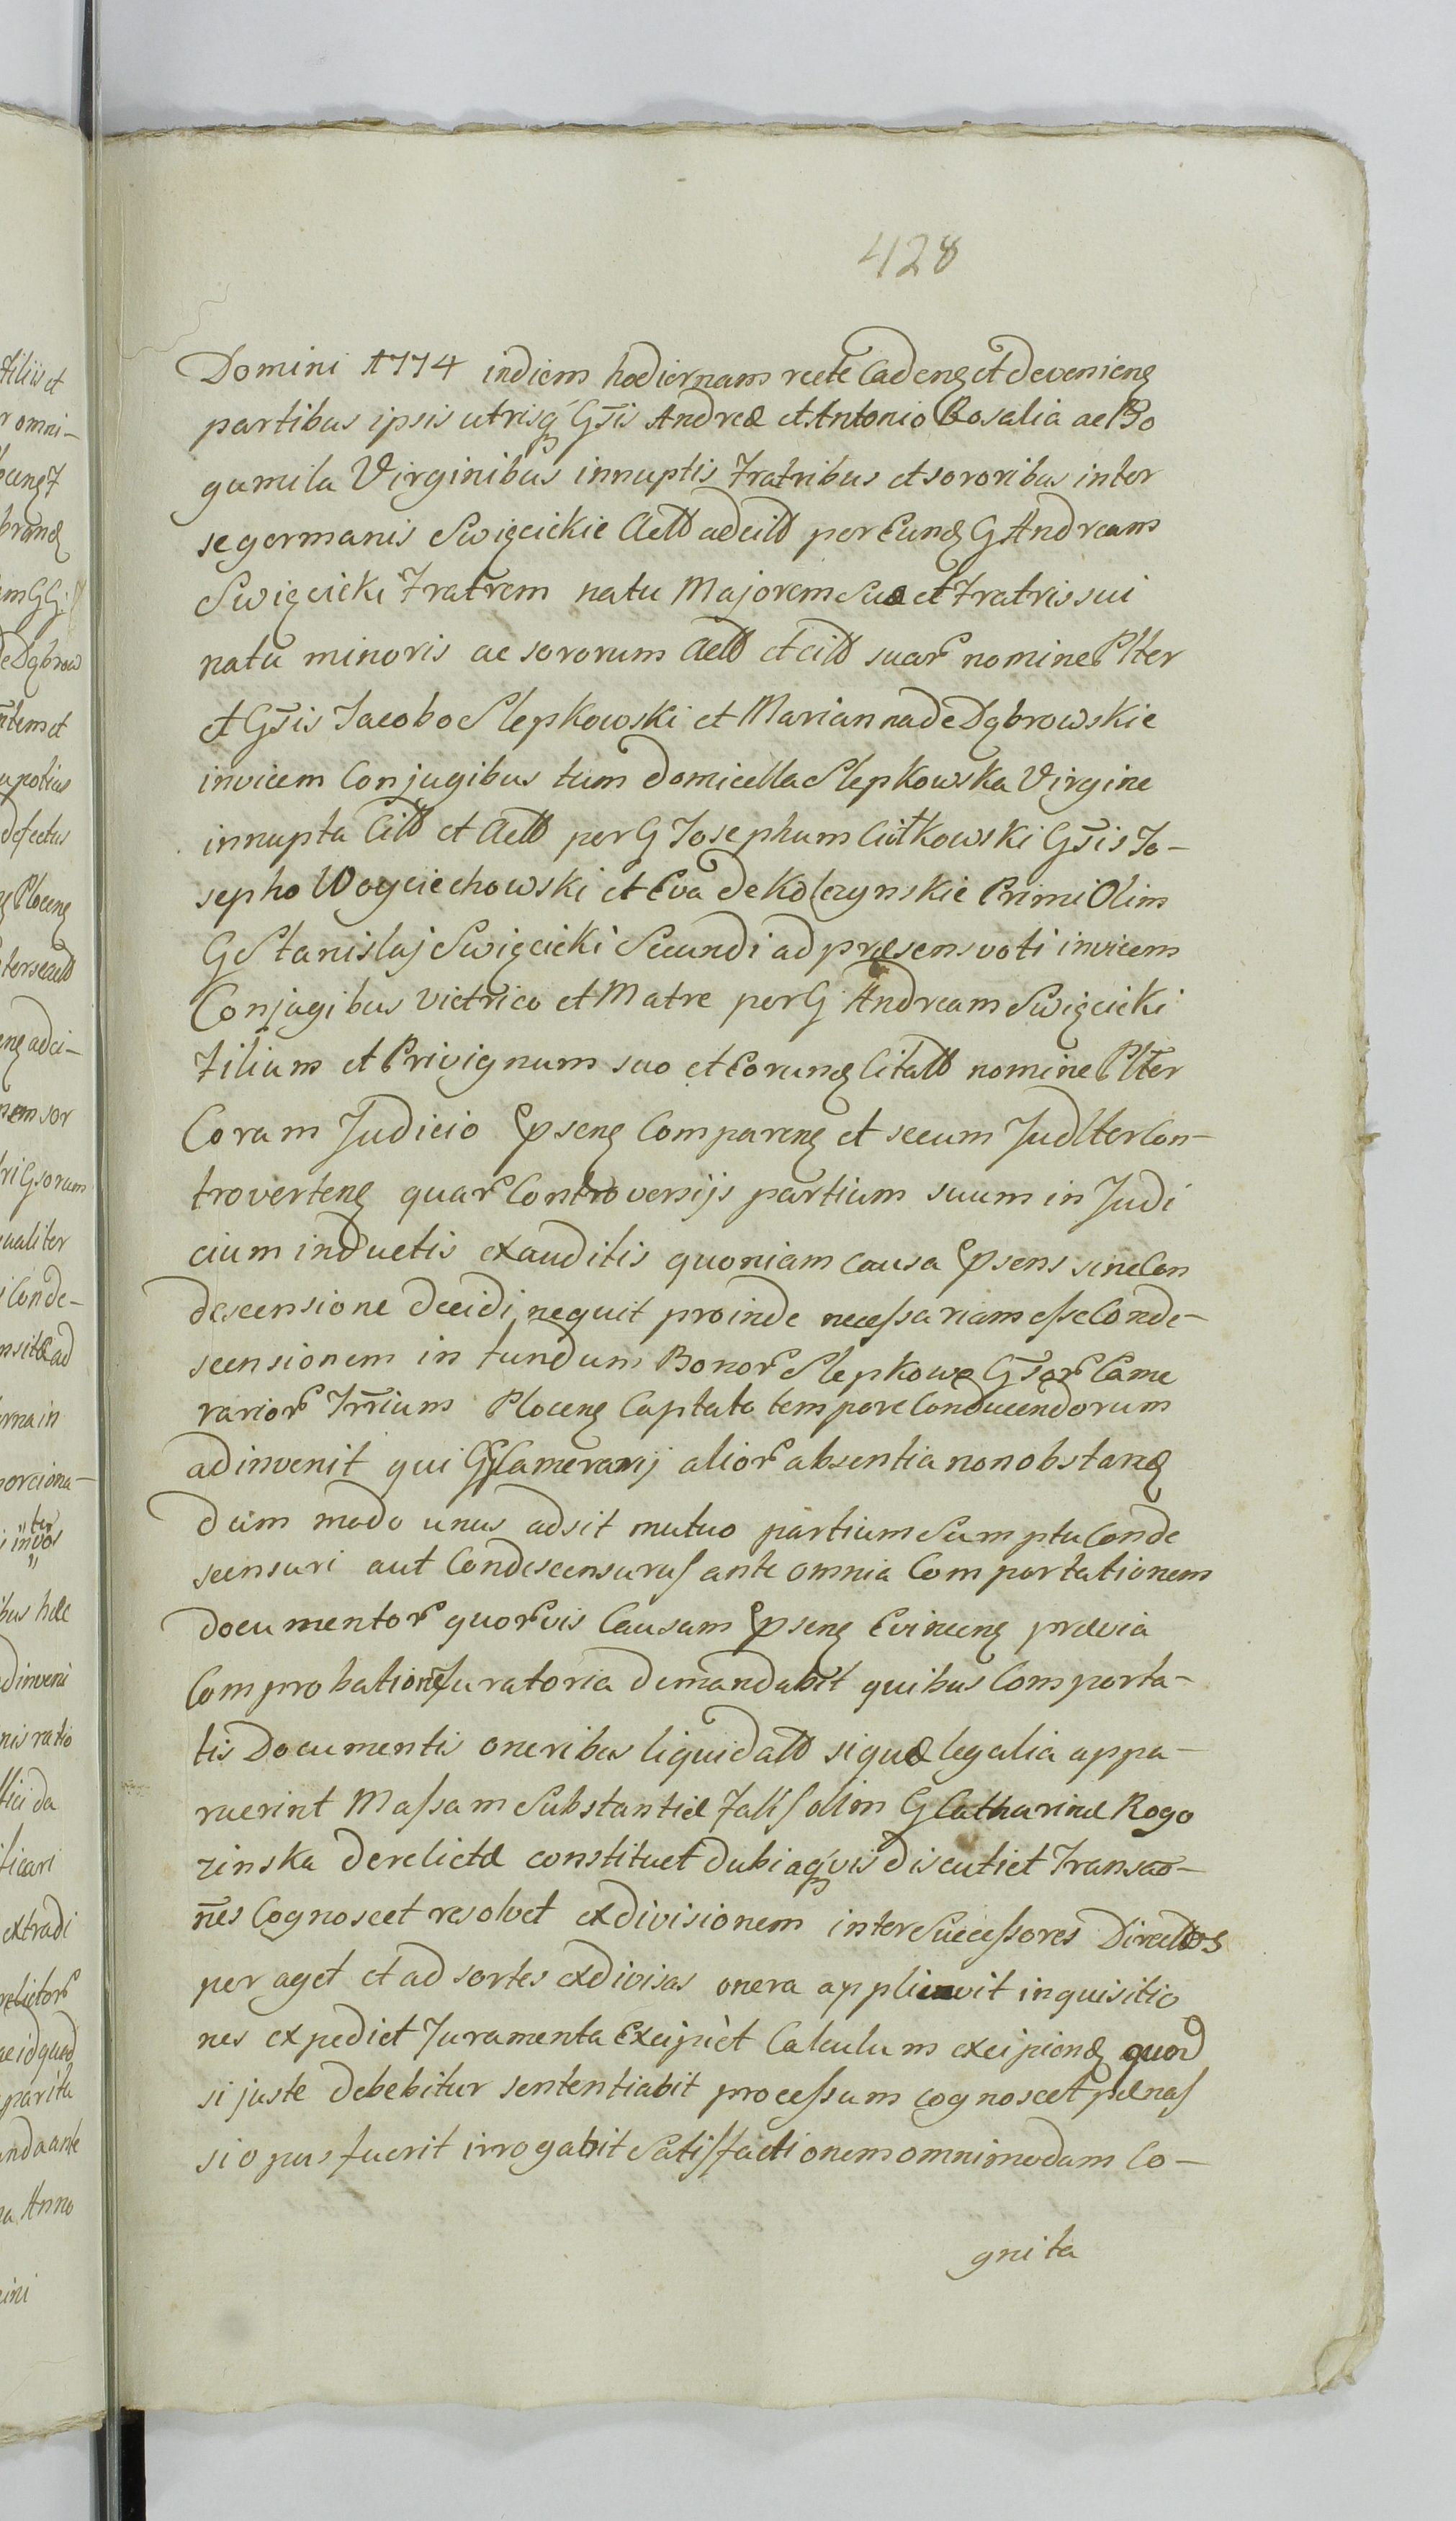 428
Domini 1774 in diem hodiernam recte Cadenꝫ et Devenienꝫ
partibus ipsis utrisqꝫ Gsis Andreæ et Antonio Rosalia ac Bo
gumila Virginibus innuptis Fratribus et sororibus inter
se germanis Swięcickie Actt ac citt per Eunꝫ G Andream
Swięcicki Fratrem natu Majorem Suo et Fratris sui
natu minoris ac sororum Actt et citt suar nomine Plter
et Gsis Jacobo Slepkowski et Marianna de Dąbrowskie
invicem Conjugibus tum Domicella Slepkowska Virgine
innupta Citt et Actt per G Josephum Ciółkowski Gsis Jo-
sepho Woyciechowski et Eva de Kolczynskie Primi Olim
G Stanislaj Swięcicki Secundi ad præsens voti invicem
Conjugibus victrico et Matre per G Andream Swięcicki
Filium et Privignum suo et Eorunꝫ Citatt nomine Plter
Coram Judicio Psenꝫ Comparenꝫ et secum Judlter Con-
trovertenꝫ quar Controversijs partium suum in Judi
cium inductis exauditis quoniam Causa Psens sine Con
descensione decidi nequit proinde necessariam esse Conde-
scensionem in fundum Bonor Slepkowo Gsor Came
rarior Trrium Plocenꝫ Captato tempore Conducendorum
adinvenit qui GG Camerarij alior absentia non obstanꝫ
dum modo unus adsit mutuo partium Sumptu Conde
scensuri aut Condescensurus ante omnia Comportationem
documentor quorvis Causam Psenꝫ Evincenꝫ prævia
Comprobatione Juratoria demandabit quibus Comporta-
tis Documentis oneribus liquidatt si quæ legalia appa-
ruerint Massam Substantiæ Fallis olim G Catharinæ Rogo
zinska derelictæ constituet dubia qꝫvis discutiet Transao-
nes Cognoscet resolvet exdivisionem inter Successores Directtos
peraget et ad sortes exdivisas onera applicavit inquisitio
nes expediet Juramenta Excipiet Calculum excipienꝫ quod
si juste debebitur sententiabit processum cognoscet pænas
si opus fuerit irrogabit Satisfactionem omnimodam Co-
gnita